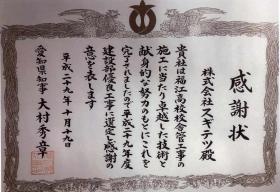 感謝状
株式会社スギテツ殿
貴社は福江高校校舎管工事の
施工に当たり卓越した技術と
献身的な努力のもとにこれを
完了されましたので平成二十九年度
建設部優良工事に選定し感謝の
意を表します
平成二十九年十月十九日
愛知県知事 大村秀章